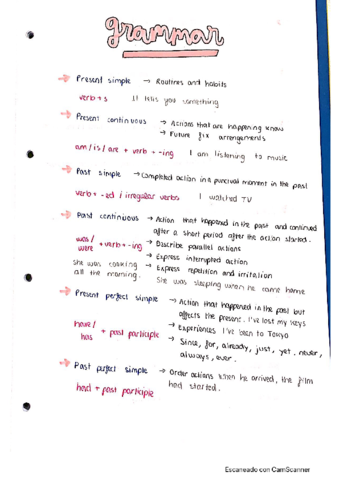 grammar
Present simple → Routines and habits
verb + s It tells you something
Present continuous → Actions that are happening know
→ Future fix arrangements
am / is / are + verb + -ing I am listening to music
Past simple → Completed action in a puncival moment in the past
verb + -ed / irregular verbs I watched TV
Past continuous → Action that happened in the past and continued
after a short period after the action started.
was / were + verb + -ing → Describe parallel actions
→ Express interrupted action
She was cooking all the morning. → Express repetition and irritation
She was sleeping when he came home
Present perfect simple → Action that happened in the past but
affects the present. I've lost my keys
have / has + past participle → Experiences I've been to Tokyo
→ Since, for, already, just, yet, never,
always, ever.
Past perfect simple → Order actions when he arrived, the film
had started.
had + past participle
Escaneado con CamScanner